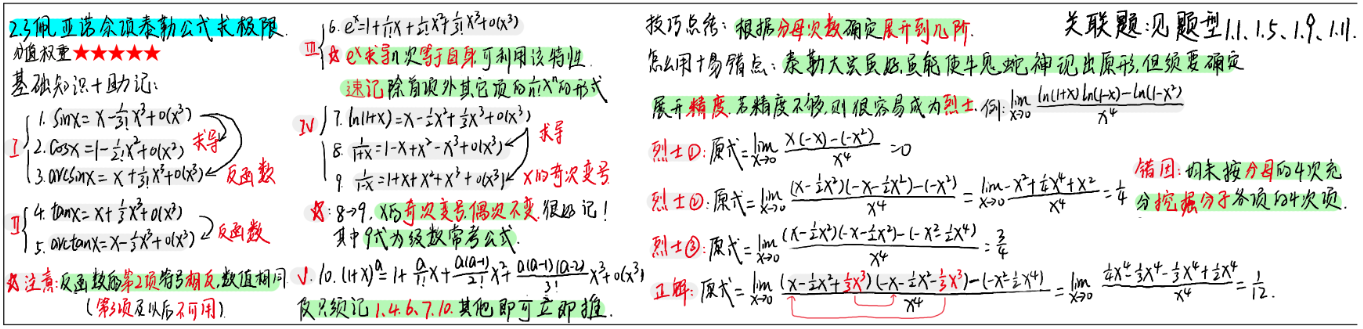 2.3佩亚诺余项泰勒公式求极限.
分值权重★★★★★
基础知识+助记:
I
1. sinx=x-1/3!x³+o(x³)
2. cosx=1-1/2!x²+o(x²) 求导
3. arcsinx=x+1/3!x³+o(x³) 反函数
II
4. tanx=x+1/3x³+o(x³)
5. arctanx=x-1/3x³+o(x³) 反函数
☆注意:反函数的第2项符号相反,数值相同
(第3项及以后不可用)
III
6. eˣ=1+1/1!x+1/2!x²+1/3!x³+o(x³)
☆eˣ求导n次等于自身可利用该特性
速记除首项外其它项为1/n!xⁿ的形式
IV
7. ln(1+x)=x-1/2x²+1/3x³+o(x³)
求导
8. 1/(1+x)=1-x+x²-x³+o(x³)
9. 1/(1-x)=1+x+x²+x³+o(x³) x的奇次变号
☆:8→9. x的奇次变号偶次不变.很好记!
其中9式为级数常考公式.
V. 10. (1+x)ᵃ=1+a/1!x+a(a-1)/2!x²+a(a-1)(a-2)/3!x³+o(x³)
及只须记1.4.6.7.10.其他即可立即推.
技巧点结:根据分母次数确定展开到几阶.
关联题:见题型1.1、1.5、1.9、1.11.
怎么用+易错点:泰勒大法虽好,虽能使牛鬼蛇神现出原形,但须要确定
展开精度.若精度不够,则很容易成为烈士.例:lim x→0 (ln(1+x)ln(1-x)-ln(1-x²))/x⁴
烈士①:原式=lim x→0 (x(-x)-(-x²))/x⁴=0
烈士②:原式=lim x→0 ((x-1/2x²)(-x-1/2x²)-(-x²))/x⁴=lim x→0 (-x²+1/4x⁴+x²)/x⁴=1/4
错因:均未按分母的4次充
分挖掘分子各项的4次项.
烈士③:原式=lim x→0 ((x-1/2x²)(-x-1/2x²)-(-x²-1/2x⁴))/x⁴=3/4
正解:原式=lim x→0 ((x-1/2x²+1/3x³)(-x-1/2x²-1/3x³)-(-x²-1/2x⁴))/x⁴=lim x→0 (1/4x⁴-1/3x⁴-1/3x⁴+1/2x⁴)/x⁴=1/12.